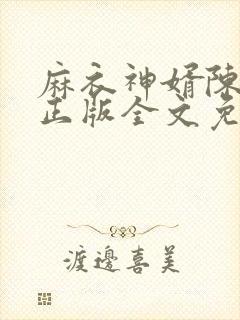 麻衣神婿陈
正版全文免
渡邊喜美